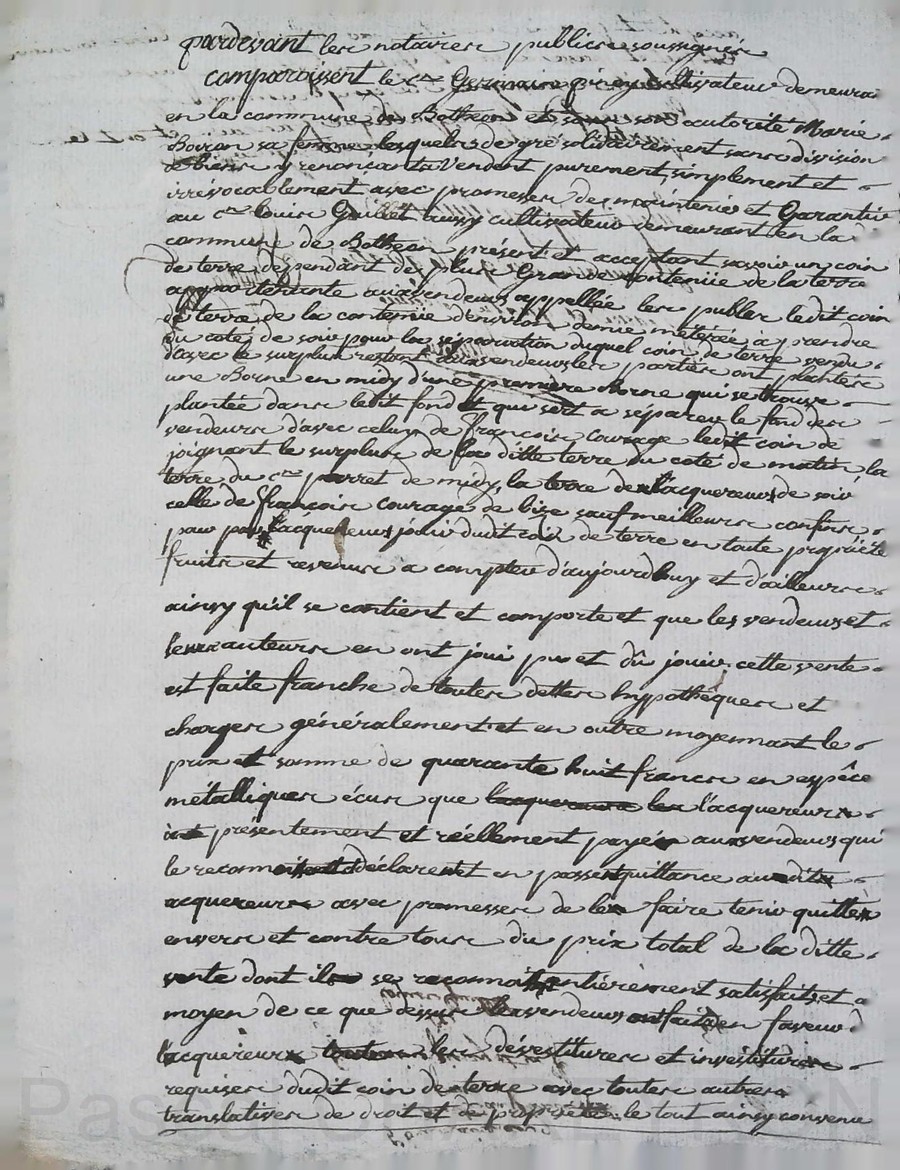 pardevant les notaires publics soussignés
comparoissent le c.en Germain cultivateur demeurant
en la commune de Botheon et sous son autorité Marie
Boiron sa femme lesquels de gré solidairement sans division
de biens y renonçants vendent purement, simplement et
irrévocablement avec promesses de maintenir et Garantir
au c.en Louis aussy cultivateur demeurant en la
commune de Botheon présent et acceptant savoir un coin
de terre dépendant de plus Grande contenüe de la terre
appartenante auxvendeurs appellée les publes ledit coin
de terre de la contenüe d'environ demie méterée à prendre
du coté de soir pour la séparation duquel coin de terre vendu
d'avec le surplus restant auxvendeurs les parties ont plantés
une Borne en midy d'une première Borne qui se trouve
plantée dans ledit fond et qui sert a séparer le fond des
vendeurs d'avec celuy de françois Courage ledit coin de
joignant le surplus de la ditte terre du coté de matin la
terre du c.en parret de midy, la terre de l'acquereur de soir
celle de françois Courage de bize sauf meilleurs confins
pour par l'acquereur jouir dudit coin de terre en toute propriété
fruits et revenus a compter d'aujourdhuy et d'ailleurs
ainsy qu'il se contient et comporte et que les vendeurs et
leurs auteurs en ont joui pu et dû jouir cette vente
est faite franche de toutes dettes hypothêques et
charges généralement et en outre moyennant le
prix et somme de quarante huit francs en espêce
métalliques écus que l'acquereur
présentement et réellement payés aux vendeurs qui
le reconnoissent déclarent en passent quittance
acquereur avec promesses de le faire tenir quitte
envers et contre tous du prix total de la ditte
vente dont ils se reconnoissent entièrement satisfaits et
moyen de ce que dessus les vendeurs ont fait en faveur d
l'acquereur les dévestitures et investitures
requises dudit coin de terre avec toutes autres
translatives de droit et de propriété le tout ainsy convenu